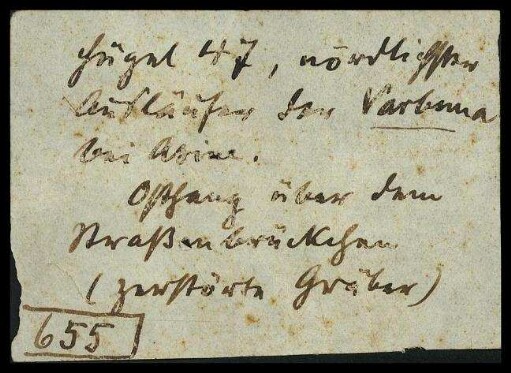 Hügel 47, nördlichster
Ausläufer der Barbuna
bei Asine.
Osthang über dem
Straßenbrückchen
(zerstörte Gräber)
655